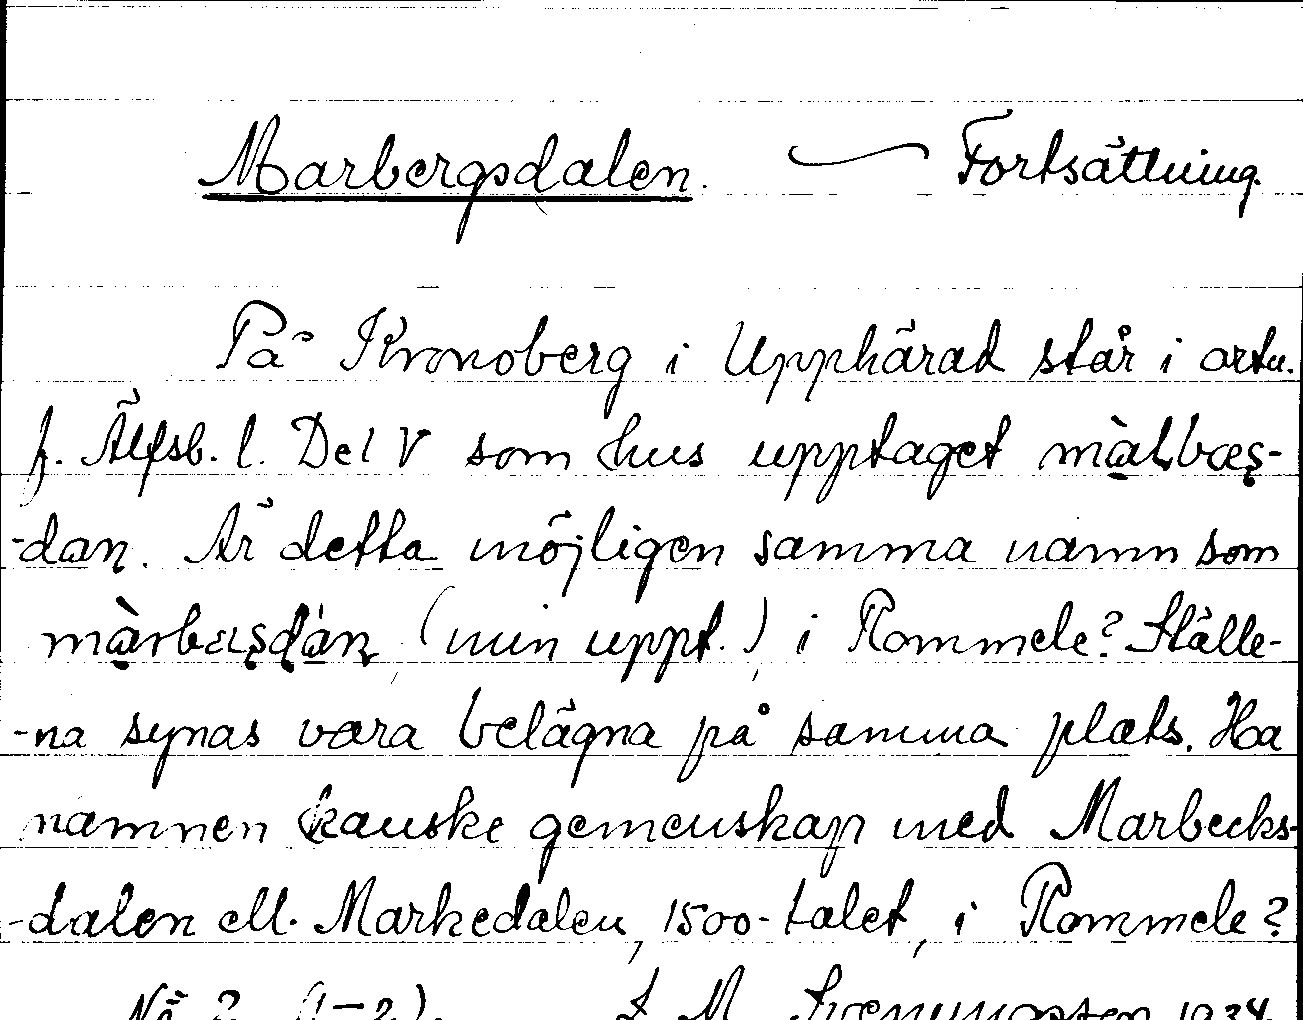 Marbergsdalen. — Fortsättning.
På Kronoberg i Upphärad står i ortn.
f. Älfsb. l. Del V som hus upptaget
-dan. Är detta möjligen samma namn som
(min uppt.) i Rommele? Ställe-
-na synas vara belägna på samma plats. Ha
namnen kanske gemenskap med Marbecks-
-dalen ell. Markedalen, 1500-talet, i Rommele?
No 2 (1-2). 1934.